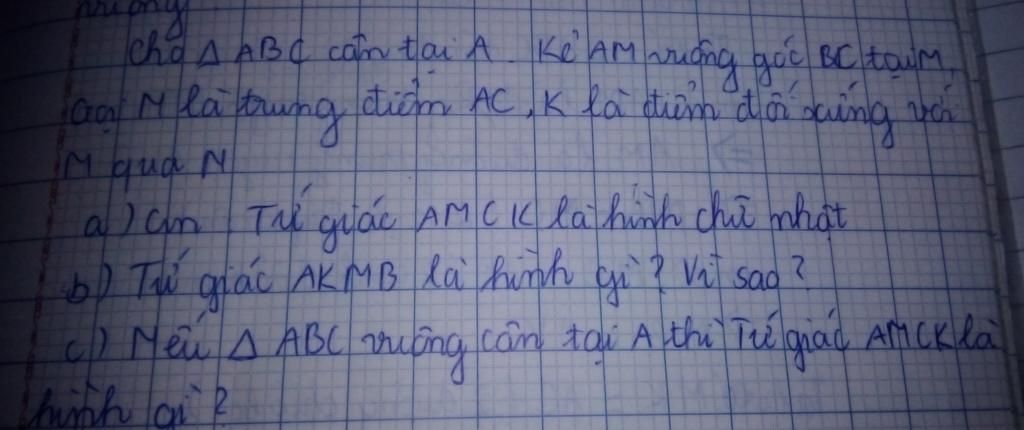 Cho Δ ABC cân tại A. Kẻ AM vuông góc BC tại M,
gọi N là trung điểm AC, K là điểm đối xứng với
M qua N
a) Cm Tứ giác AMCK là hình chữ nhật
b) Tứ giác AKMB là hình gì? Vì sao?
c) Nếu Δ ABC vuông cân tại A thì Tứ giác AMCK là
hình gì?